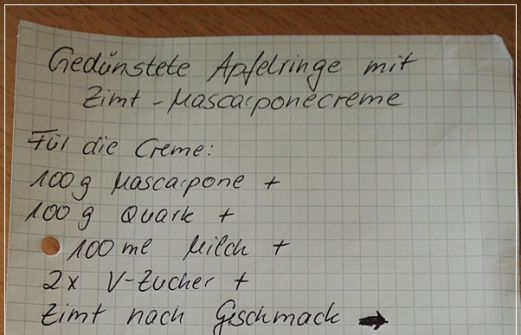 Gedünstete Apfelringe mit
Zimt-Mascarponecreme
Für die Creme:
100g Mascarpone +
100g Quark +
100 ml Milch +
2x V-Zucker +
Zimt nach Geschmack →